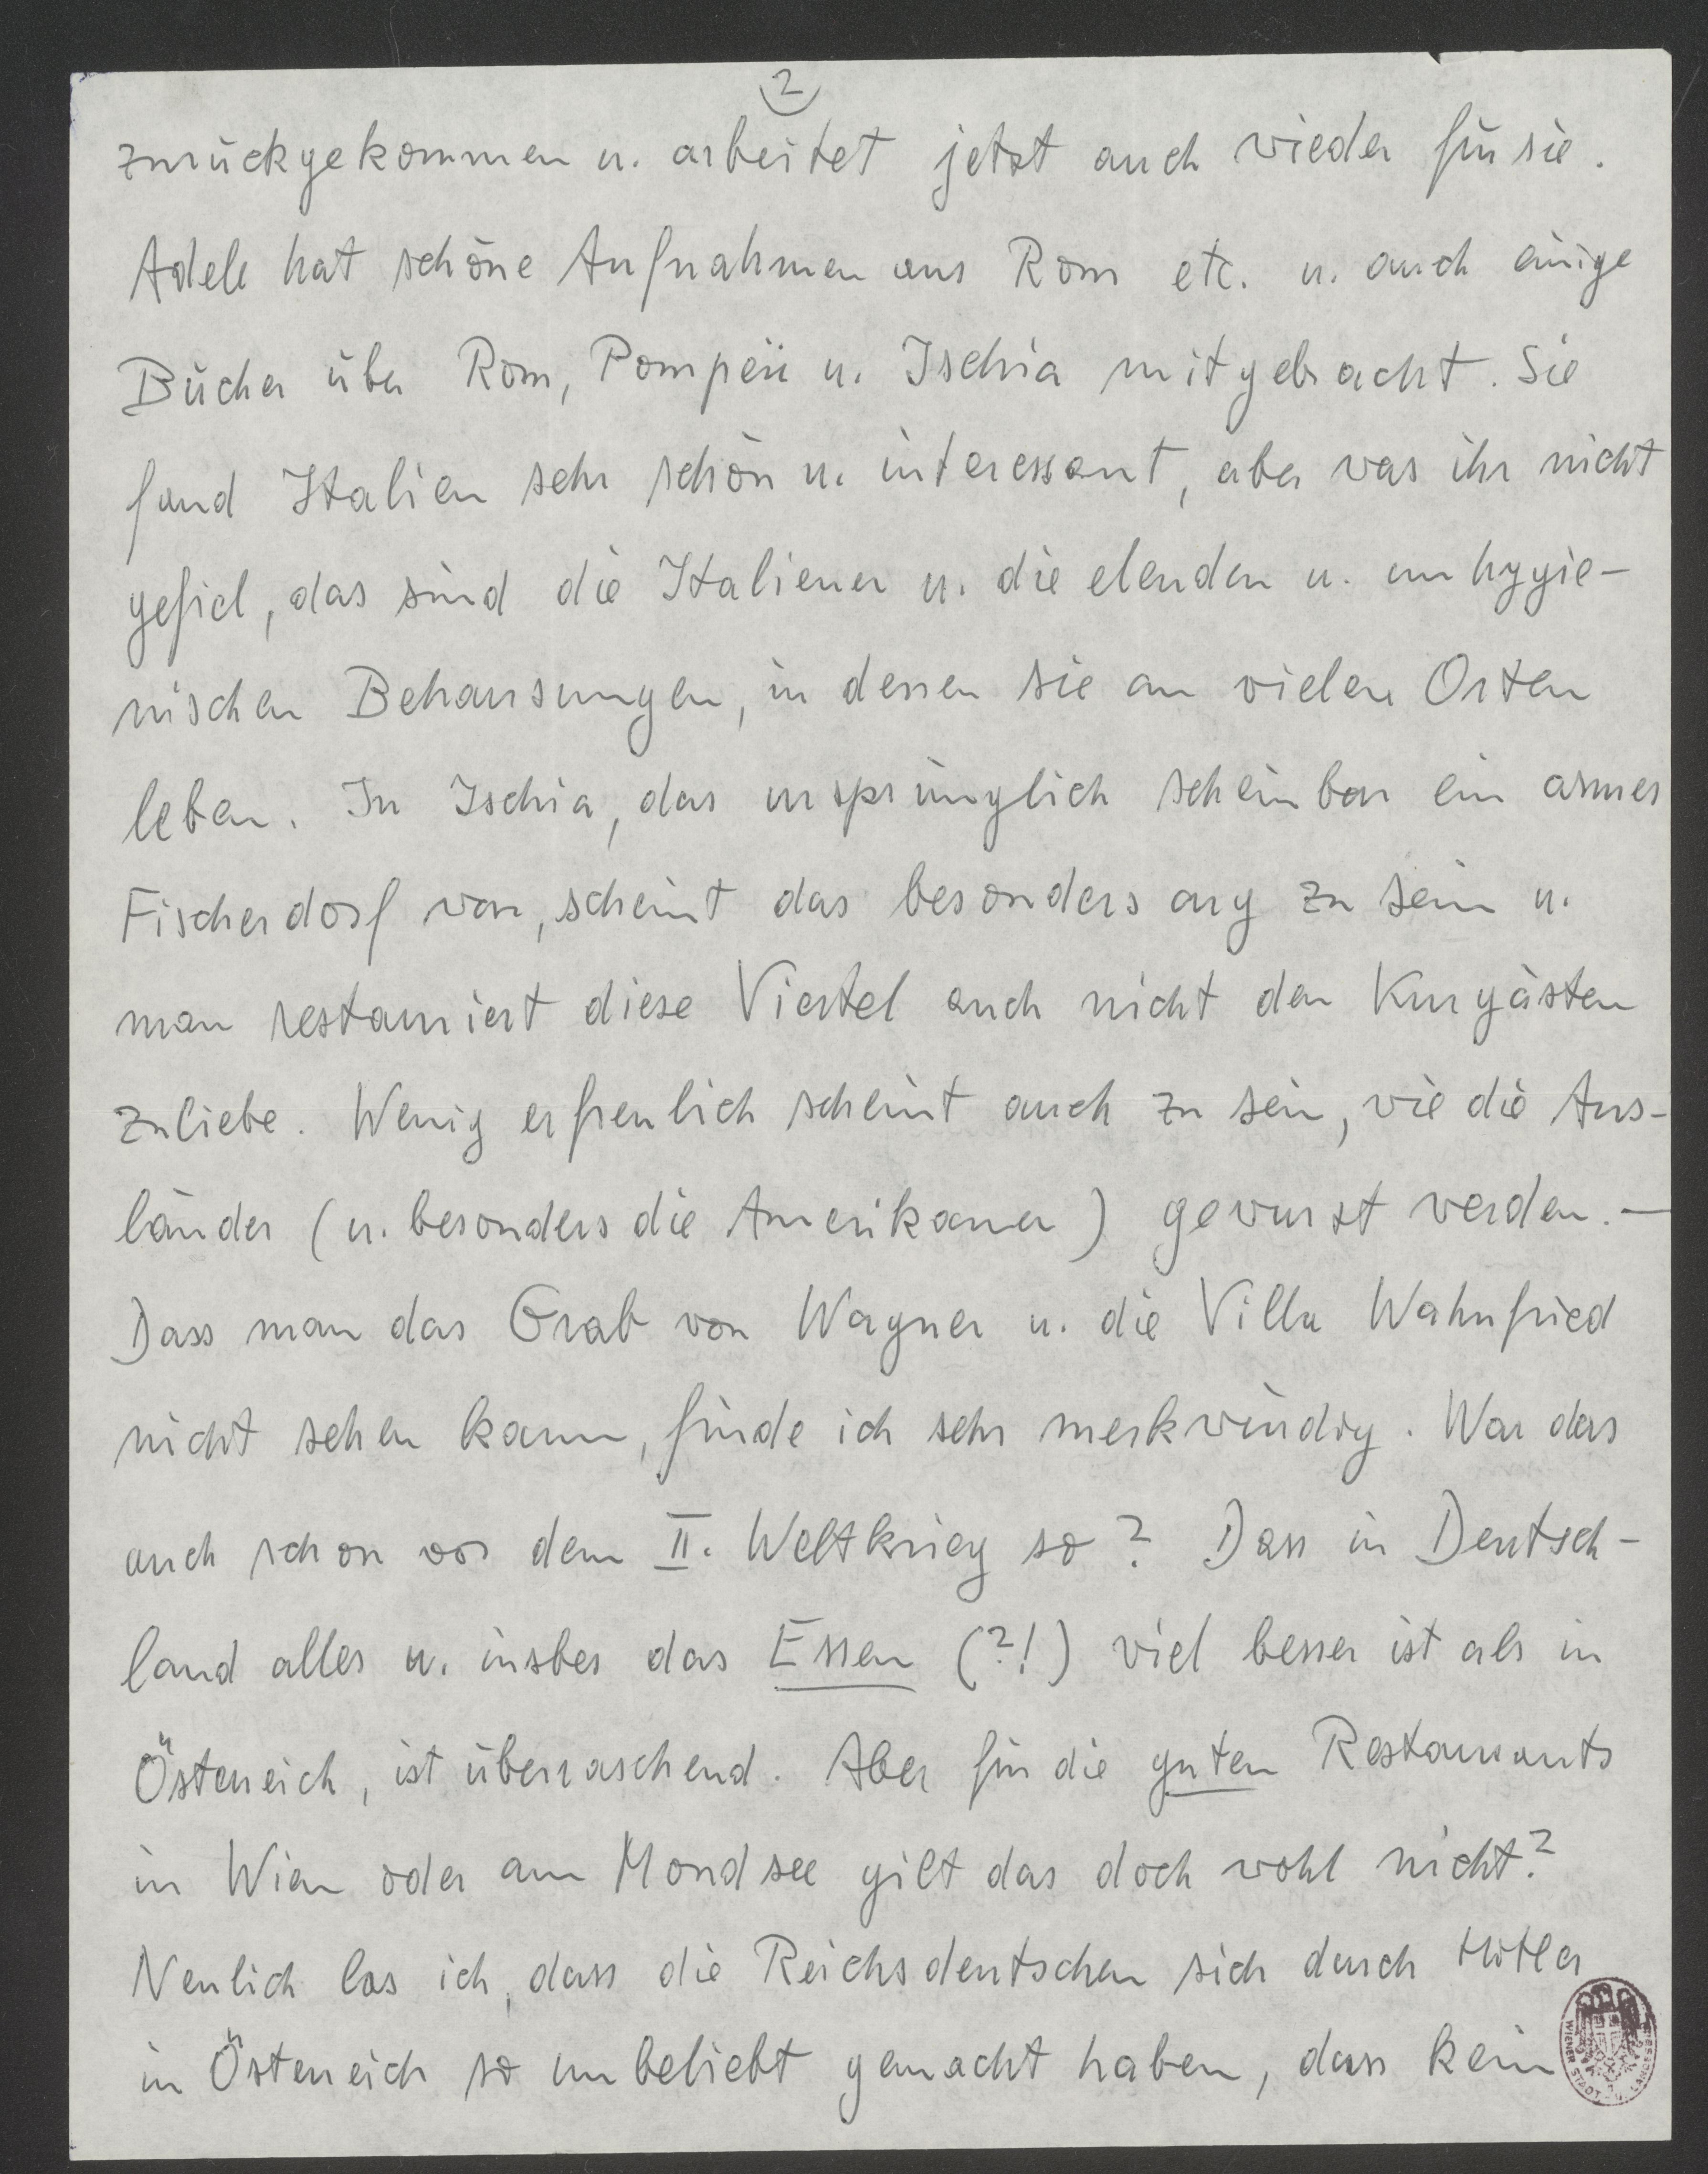 2
zurückgekommen u. arbeitet jetzt auch wieder für sie.
Adele hat schöne Aufnahmen aus Rom etc. u. auch einige
Bücher über Rom, Pompeii u. Ischia mitgebracht. Sie
fand Italien sehr schön u. interessant, aber was ihr nicht
gefiel, das sind die Italiener u. die elenden u. unhygie-
nischen Behausungen, in denen sie an vielen Orten
leben. In Ischia, das ursprünglich scheinbar ein armes
Fischerdorf war, scheint das besonders arg zu sein u.
man restauriert diese Viertel auch nicht den Kurgästen
zuliebe. Wenig erfreulich scheint auch zu sein, wie die Aus-
länder (u. besonders die Amerikaner) gewurzt werden. —
Dass man das Grab von Wagner u. die Villa Wahnfried
nicht sehen kann, finde ich sehr merkwürdig. War das
auch schon vor dem II. Weltkrieg so? Dass in Deutsch-
land alles u. insbes das Essen (?!) viel besser ist als in
Österreich, ist überraschend. Aber für die guten Restaurants
in Wien oder am Mondsee gilt das doch wohl nicht?
Neulich las ich, dass die Reichsdeutschen sich durch Hitler
in Österreich so unbeliebt gemacht haben, dass kein
WIENER STADT- U. LANDESBI